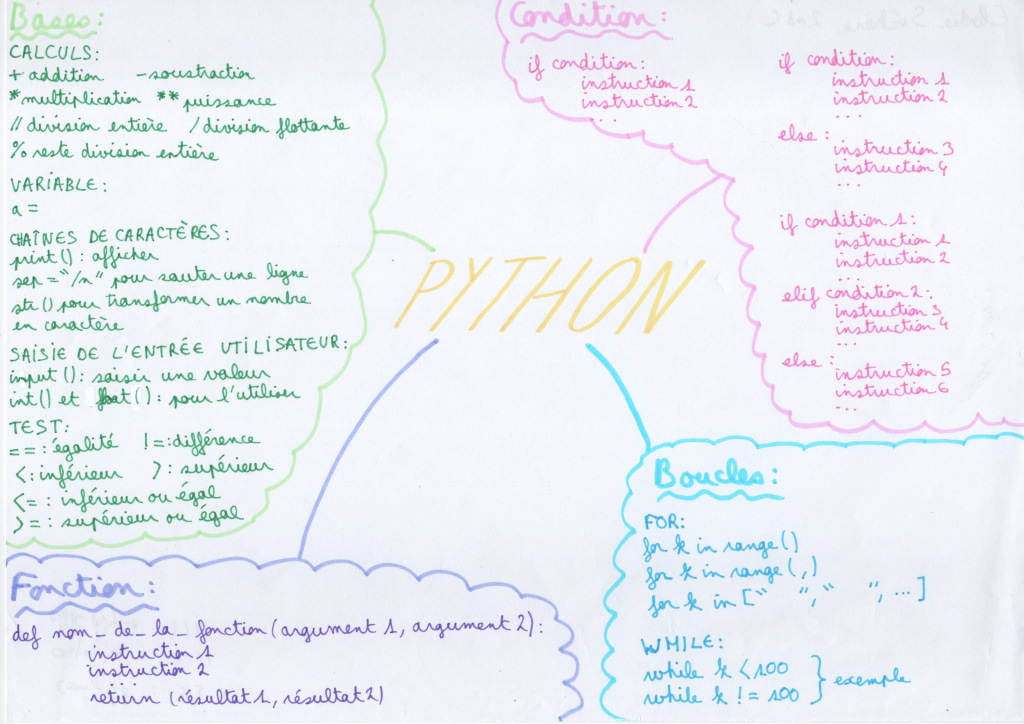 Bases:
CALCULS:
+ addition - soustraction
* multiplication ** puissance
// division entière / division flottante
% reste division entière
VARIABLE:
a =
CHAÎNES DE CARACTÈRES:
print(): afficher
sep = "/n" pour sauter une ligne
str() pour transformer un nombre
en caractère
SAISIE DE L'ENTRÉE UTILISATEUR:
input(): saisir une valeur
int() et float(): pour l'utiliser
TEST:
==: égalité !=: différence
<: inférieur >: supérieur
<=: inférieur ou égal
>=: supérieur ou égal
Condition:
if condition:
instruction 1
instruction 2
...
if condition:
instruction 1
instruction 2
...
else:
instruction 3
instruction 4
...
if condition 1:
instruction 1
instruction 2
...
elif condition 2:
instruction 3
instruction 4
...
else:
instruction 5
instruction 6
...
PYTHON
Fonction:
def nom_de_la_fonction(argument 1, argument 2):
instruction 1
instruction 2
...
return (résultat 1, résultat 2)
Boucles:
FOR:
for k in range()
for k in range(,)
for k in [" ", " ", ...]
WHILE:
while k < 100
while k != 100
exemple